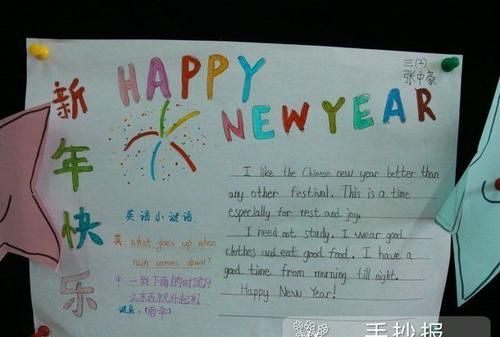 新年快乐
HAPPY
NEW YEAR
三(2)
张中豪
I like the Chinese new year better than
any other festival. This is a time
especially for rest and joy.
I need not study. I wear good
clothes and eat good food. I have a
good time from morning till night.
Happy New Year!
英语小谜语
英. what goes up when
rain comes down?
中 一到下雨的时候什
么东西就升起来?
谜底: (雨伞)
手抄报